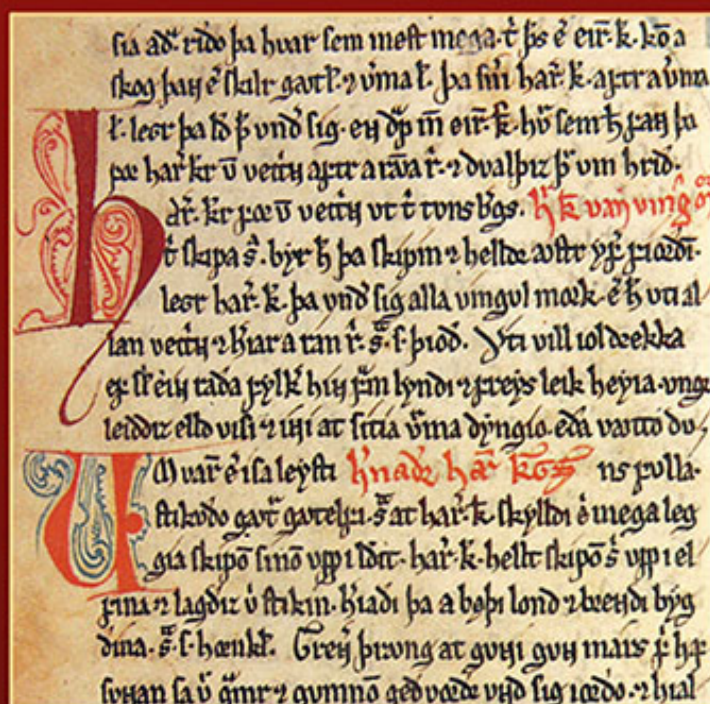 sia að᷎. riðo þa hvar sem mest mega. t̉ þs e᷎ eir̄. k. kō a
skog þaɴ e᷎ skilr gavtl̄. ⁊ v̄mal̄. þa har̄. k̄. aptr a v̄ma
l̄. legr þa ld̄ þ̄ vnd̉ sig. eɴ dͣp m̄ eir̄. k̄. hv̄ sem h̄ faɴ þa
foꝛ har̄ kr v̄ vetꝛ̄ aptr a ꝛ̄. ⁊ dvalþiz þ̄ vm hrið.
dr̄. kr foꝛ v̄ vetꝛ̄ vt t̉ tvnsb̉gs. h̄ k̄ vaɴ
t̉ skipa s̉. byr h̄ þa skipin ⁊ helldr avstr yf̉ fiordī.
legr har̄. k̄. þa vnd̉ sig alla vingvl mork. e᷎ h̄ vti al
lan vetꝛ̄ ⁊ h̉iar a ran r̄. s̄. s. þiod. Vti vill iol drekka
ef sl̄ eiɴ rada fylk̉ hiɴ fͣm lyndi ⁊ freys leik heyia. vnge
leiddiz elld visi ⁊ iɴi at sitia v̉ma dyngio. eda vavtto dv
Um var᷎ e᷎ isa leysti h̉nadꝛ har̄ kgs ns fvlla.
stikodo gavt̄ gavtelfi. s̄ at har̄. k̄ skylldi e᷎ mega leg
gia skipō sinō vpp i lꝺit. har̄. k̄. hellt skipō s̉ vpp i el
fina ⁊ lagdiz v̉ stikin. h̉iadi þa a bæþi lond ⁊ brendi byg
dina. s̄. s. hornkl̄. Greɴ þrvng at gvɴi gvɴ mars f̉ haf
svnan sa v̄ gͣmr ⁊ gvmnō gedvordr vnd sig iordo. ⁊ hial